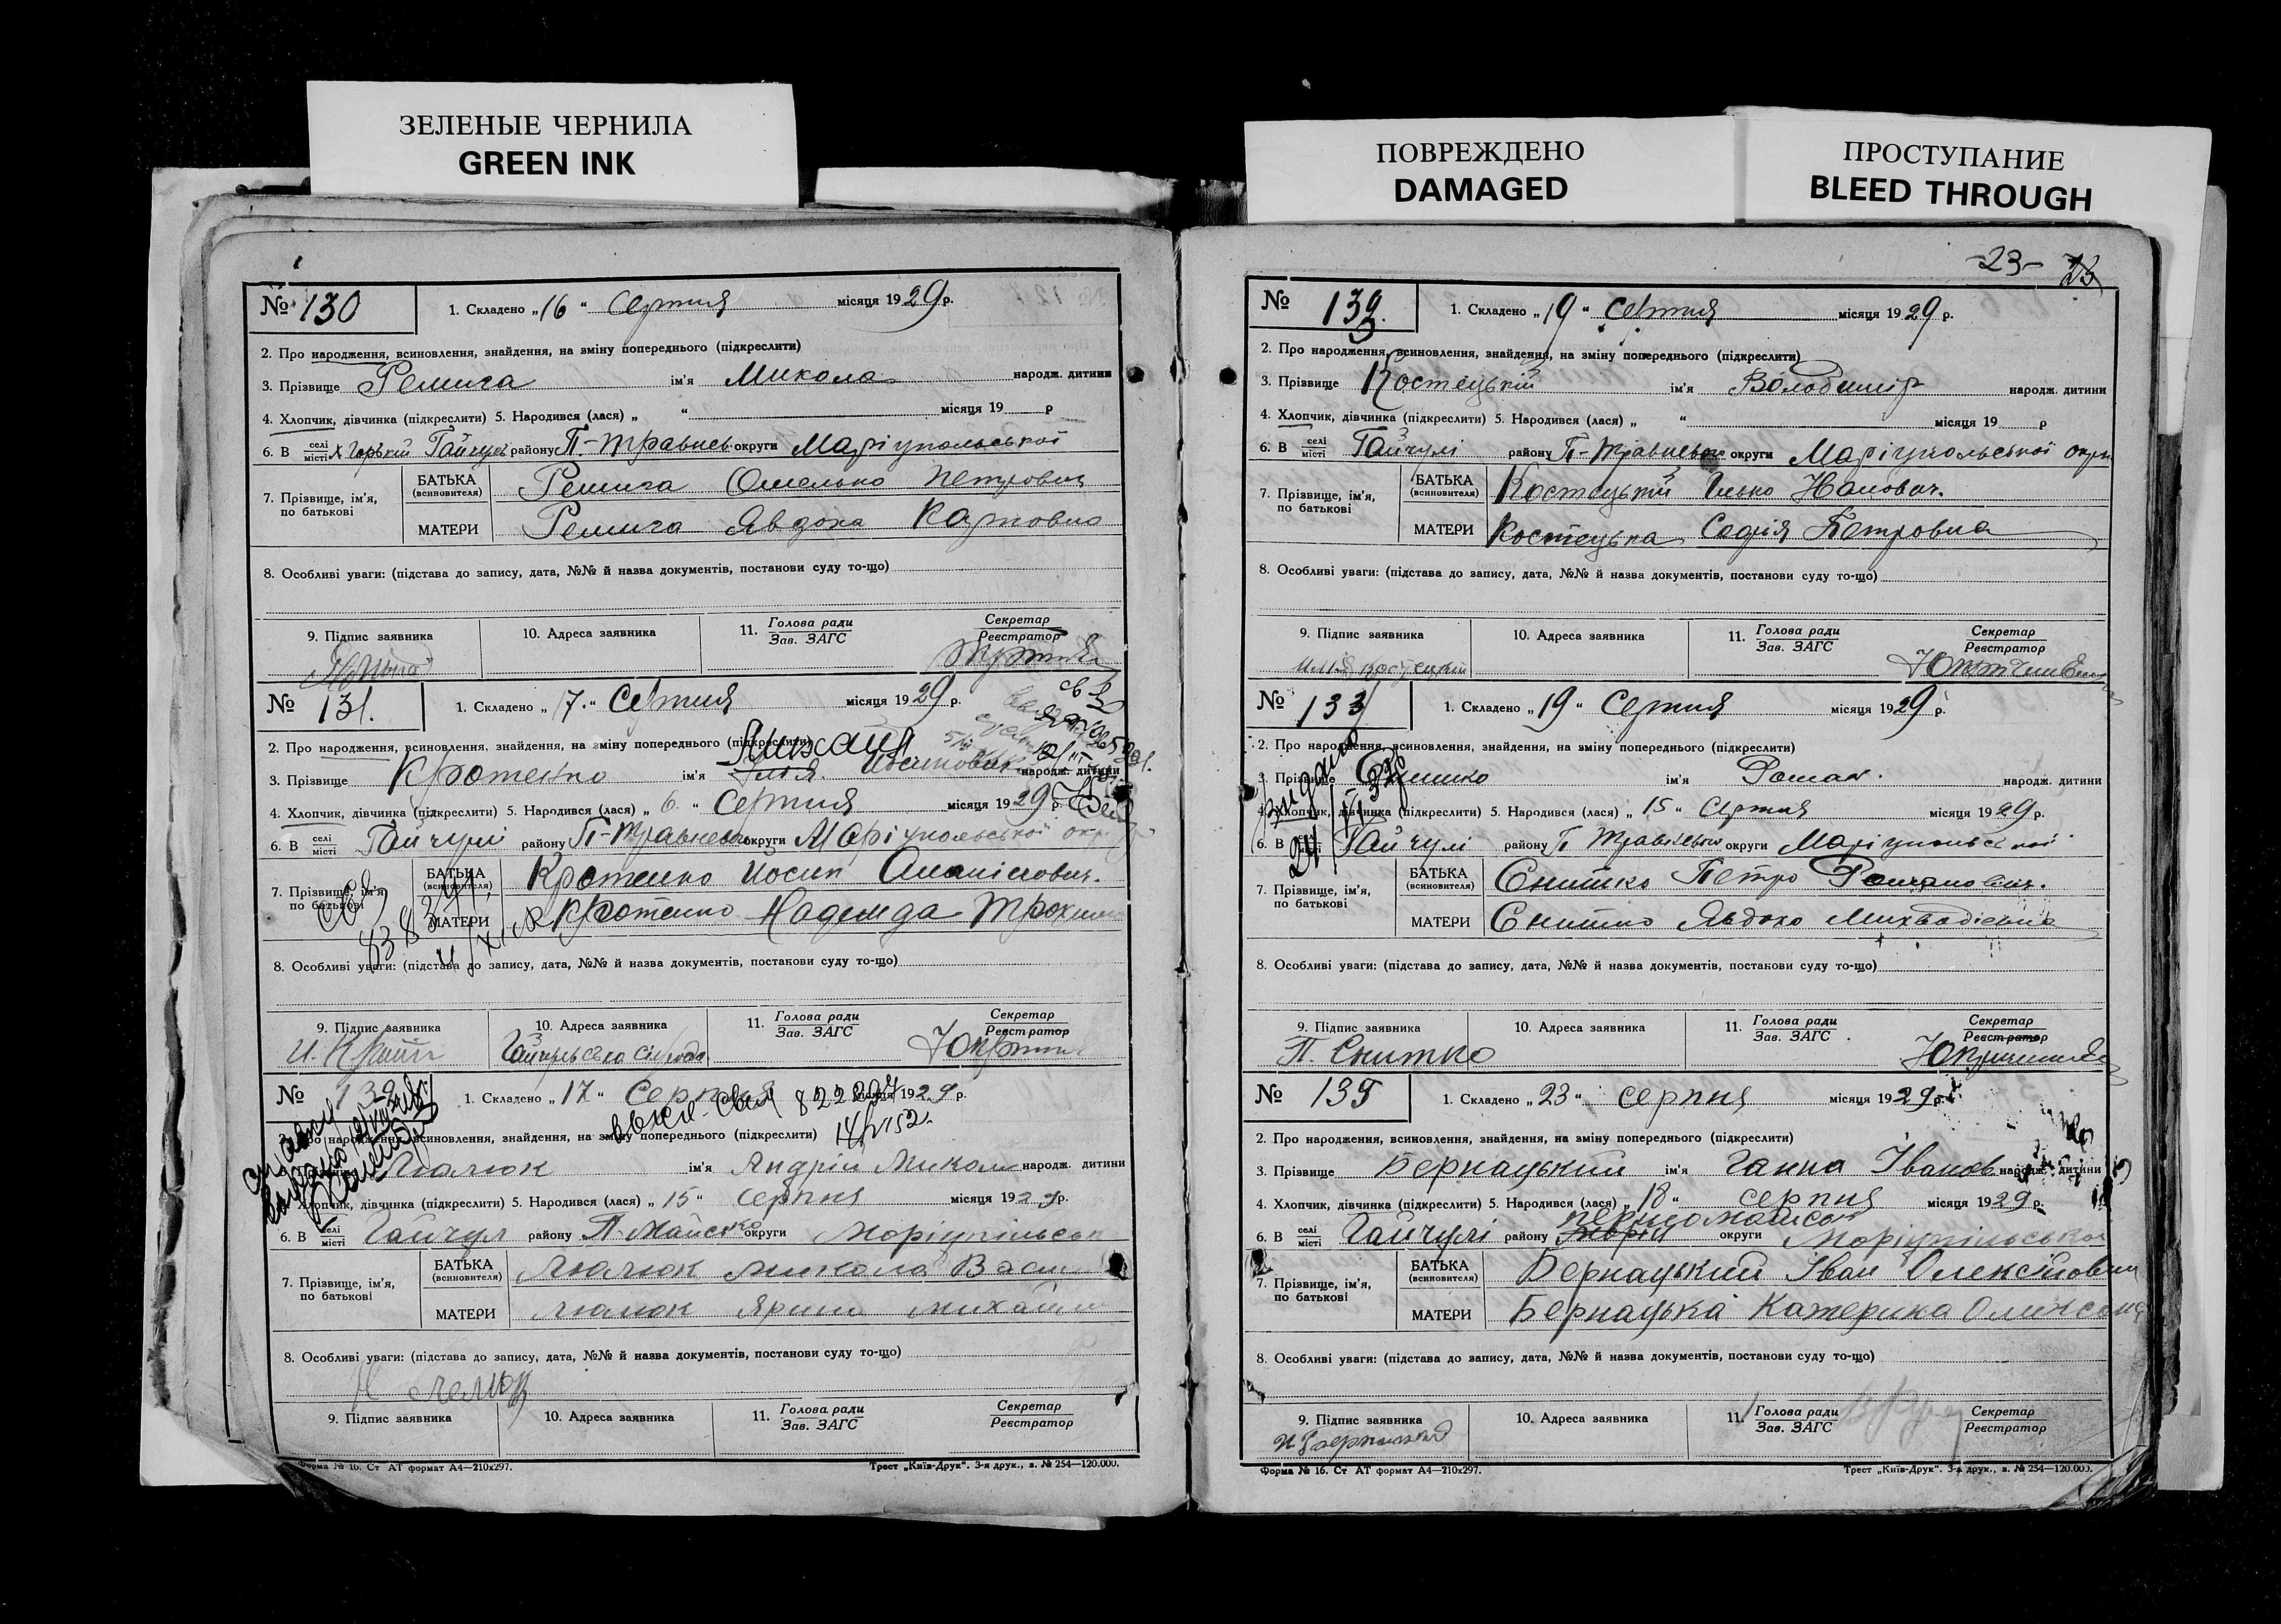 ЗЕЛЕНЫЕ ЧЕРНИЛА
GREEN INK
№ 130
1. Складено „16“ Серпня місяця 1929 р.
2. Про народження, всиновлення, знайдення, на зміну попереднього (підкреслити)
3. Прізвище Ремига ім'я Микола народж. дитини
4. Хлопчик, дівчинка (підкреслити) 5. Народився (лася) „ “ місяця 19 р
6. В селі місті Гайчул району П-Травнев. округи Маріупольської
7. Прізвище, ім'я, по батькові
БАТЬКА (всиновителя) Ремига Омелько Петрович
МАТЕРИ Ремига Явдоха Карповна
8. Особливі уваги: (підстава до запису, дата, №№ й назва документів, постанови суду то-що)
9. Підпис заявника
10. Адреса заявника
11. Голова ради Зав. ЗАГС
Секретар Реєстратор
№ 131.
1. Складено „17“ Серпня місяця 1929 р.
2. Про народження, всиновлення, знайдення, на зміну попереднього (підкреслити)
Михаил
3. Прізвище Кротенко ім'я Ілія народж. дитини
4. Хлопчик, дівчинка (підкреслити) 5. Народився (лася) „6“ Серпня місяця 1929 р.
6. В селі місті Гайчулі району П-Травневого округи Маріупольської окр.
7. Прізвище, ім'я, по батькові
БАТЬКА (всиновителя) Кротенко Йосип Ананійович.
МАТЕРИ Кротенко Надежда Трохим
8. Особливі уваги: (підстава до запису, дата, №№ й назва документів, постанови суду то-що)
9. Підпис заявника
10. Адреса заявника
Гайчульська сільрада
11. Голова ради Зав. ЗАГС
Секретар Реєстратор
№ 132
1. Складено „17“ Серпня місяця 1929 р.
822297
2. Про народження, всиновлення, знайдення, на зміну попереднього (підкреслити)
3. Прізвище Люлюк ім'я Андрій Микол народж. дитини
4. Хлопчик, дівчинка (підкреслити) 5. Народився (лася) „15“ серпня місяця 1929 р.
6. В селі місті Гайчул району П. Майсько округи Маріупільськ
7. Прізвище, ім'я, по батькові
БАТЬКА (всиновителя) Люлюк Микола Васи
МАТЕРИ Люлюк Ярина Михайл
8. Особливі уваги: (підстава до запису, дата, №№ й назва документів, постанови суду то-що)
9. Підпис заявника
10. Адреса заявника
11. Голова ради Зав. ЗАГС
Секретар Реєстратор
Форма № 16. Ст АТ формат А4—210x297.
Трест „Київ-Друк“. 3-я друк., з. № 254—120.000.
ПОВРЕЖДЕНО
DAMAGED
ПРОСТУПАНИЕ
BLEED THROUGH
-23-
№ 133
1. Складено „19“ Серпня місяця 1929 р.
2. Про народження, всиновлення, знайдення, на зміну попереднього (підкреслити)
3. Прізвище Костецький ім'я Володимір народж. дитини
4. Хлопчик, дівчинка (підкреслити) 5. Народився (лася) „ “ місяця 19 р
6. В селі місті Гайчулі району П-Травневого округи Маріупольської окри
7. Прізвище, ім'я, по батькові
БАТЬКА (всиновителя) Костецький Илько
МАТЕРИ Костецька Софія Петровна
8. Особливі уваги: (підстава до запису, дата, №№ й назва документів, постанови суду то-що)
9. Підпис заявника
10. Адреса заявника
11. Голова ради Зав. ЗАГС
Секретар Реєстратор
№ 133
1. Складено „19“ Серпня місяця 1929 р.
2. Про народження, всиновлення, знайдення, на зміну попереднього (підкреслити)
3. Прізвище Снитко ім'я Роман. народж. дитини
4. Хлопчик, дівчинка (підкреслити) 5. Народився (лася) „15“ Серпня місяця 1929 р.
6. В селі місті Гайчулі району П Травневого округи Маріупольської
7. Прізвище, ім'я, по батькові
БАТЬКА (всиновителя) Снитко Петро Романович.
МАТЕРИ Снитко Явдоха
8. Особливі уваги: (підстава до запису, дата, №№ й назва документів, постанови суду то-що)
9. Підпис заявника
П. Снитко
10. Адреса заявника
11. Голова ради Зав. ЗАГС
Секретар Реєстратор
№ 135
1. Складено „23“ серпня місяця 1929 р.
2. Про народження, всиновлення, знайдення, на зміну попереднього (підкреслити)
3. Прізвище Бернацький ім'я Ганна Іванов народж. дитини
4. Хлопчик, дівчинка (підкреслити) 5. Народився (лася) „18“ серпня місяця 1929 р.
6. В селі місті Гайчулі району першомайськ округи Маріупільської
7. Прізвище, ім'я, по батькові
БАТЬКА (всиновителя) Бернацький Іван Олексійович
МАТЕРИ Бернацька Катерика Олександ
8. Особливі уваги: (підстава до запису, дата, №№ й назва документів, постанови суду то-що)
9. Підпис заявника
10. Адреса заявника
11. Голова ради Зав. ЗАГС
Секретар Реєстратор
Форма № 16. Ст АТ формат А4—210x297.
Трест „Київ-Друк“. 3-я друк., з. № 254—120.000.